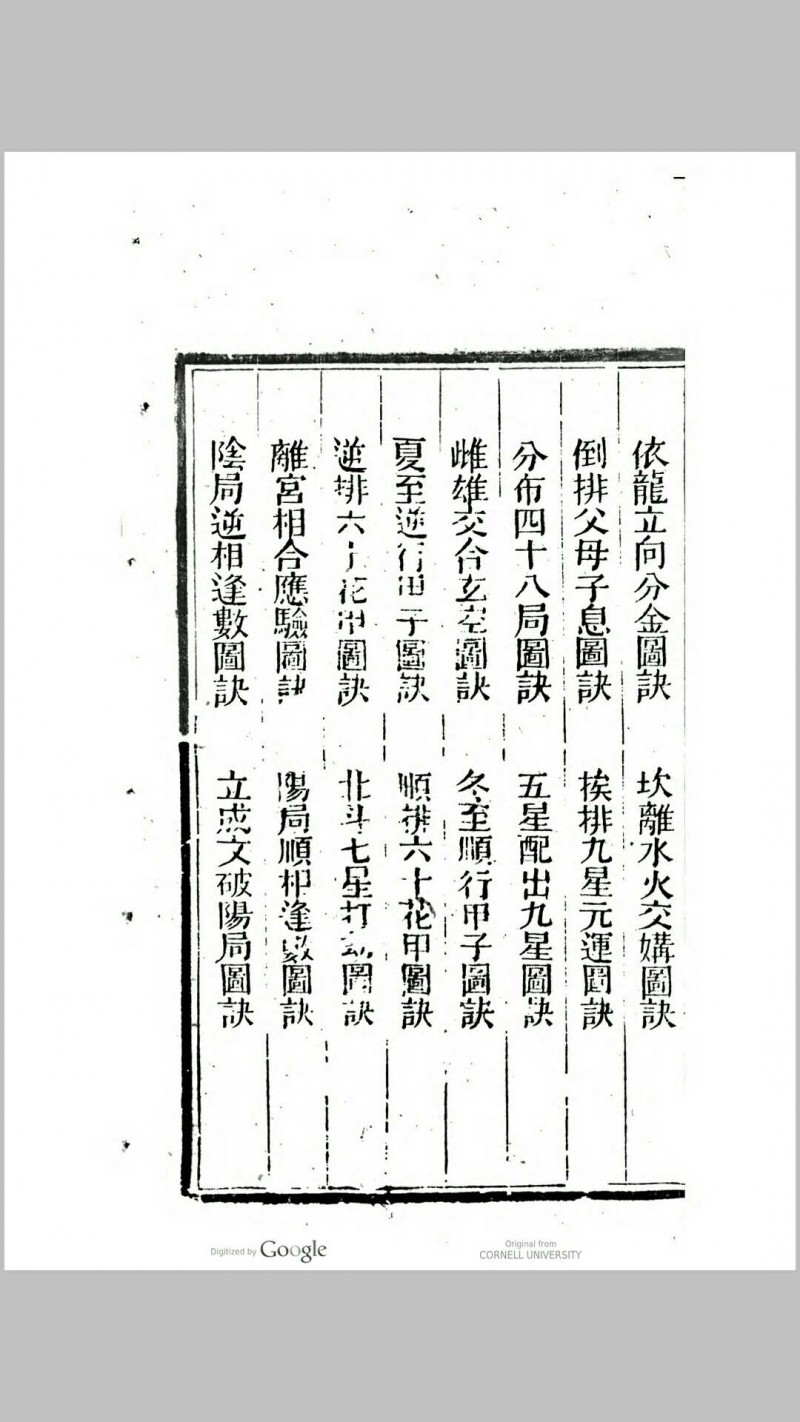 依龍立向分金圖訣　坎離水火交媾圖訣
倒排父母子息圖訣　挨排九星元運圖訣
分布四十八局圖訣　五星配出九星圖訣
雌雄交合玄空圖訣　冬至順行甲子圖訣
夏至逆行甲子圖訣　順排六十花甲圖訣
逆排六十花甲圖訣　北斗七星打劫圖訣
離宮相合應驗圖訣　陽局順相逢數圖訣
陰局逆相逢數圖訣　立成文破陽局圖訣
Digitized by Google
Original from
CORNELL UNIVERSITY